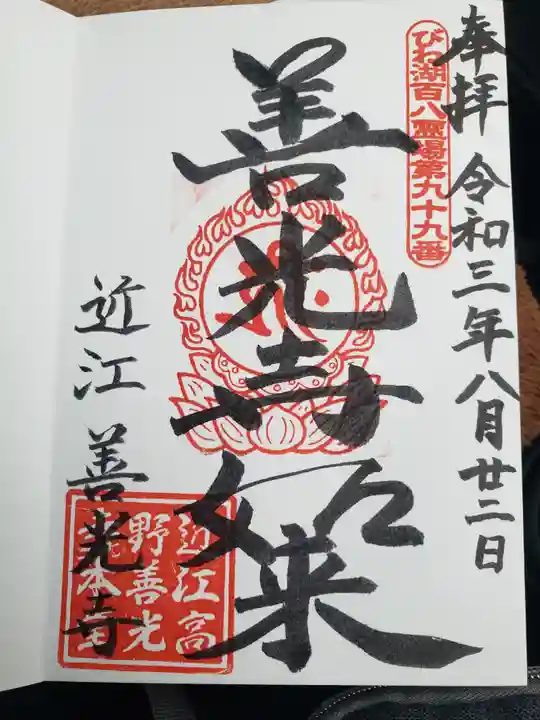 奉拝 令和三年八月廿二日
びわ湖百八霊場第九十九番
善光寺如来
近江 善光寺
近江高
野善光
寺本